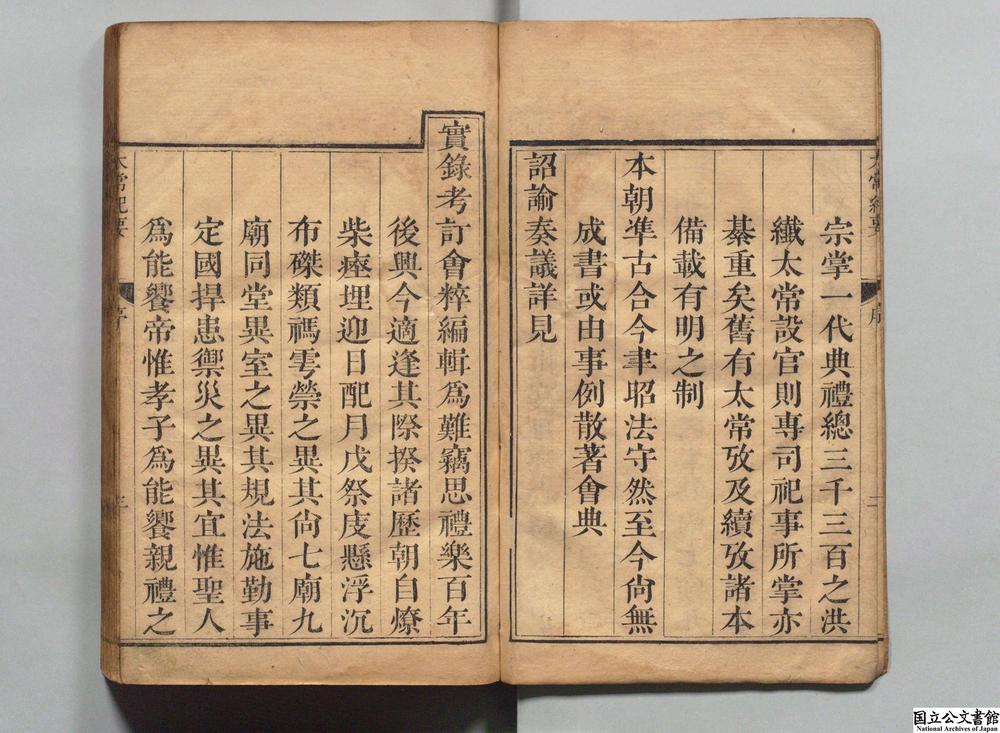 宗掌一代典禮總三千三百之洪
纖太常設官則專司祀事所掌亦
綦重矣舊有太常攷及續攷諸本
備載有明之制
本朝準古合今聿昭法守然至今尙無
成書或由事例散著會典
詔諭奏議詳見
實錄考訂會粹編輯爲難竊思禮樂百年
後興今適逢其際揆諸歷朝自燎
柴瘞埋迎日配月戊祭庋懸浮沉
布磔類禡雩禜之異其尙七廟九
廟同堂異室之異其規法施勤事
定國捍患禦災之異其宜惟聖人
爲能饗帝惟孝子爲能饗親禮之
太常紀要
序
国立公文書館
National Archives of Japan